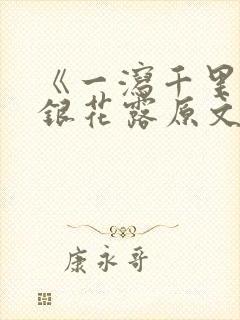 《一泻千里
银花露原文
康永哥